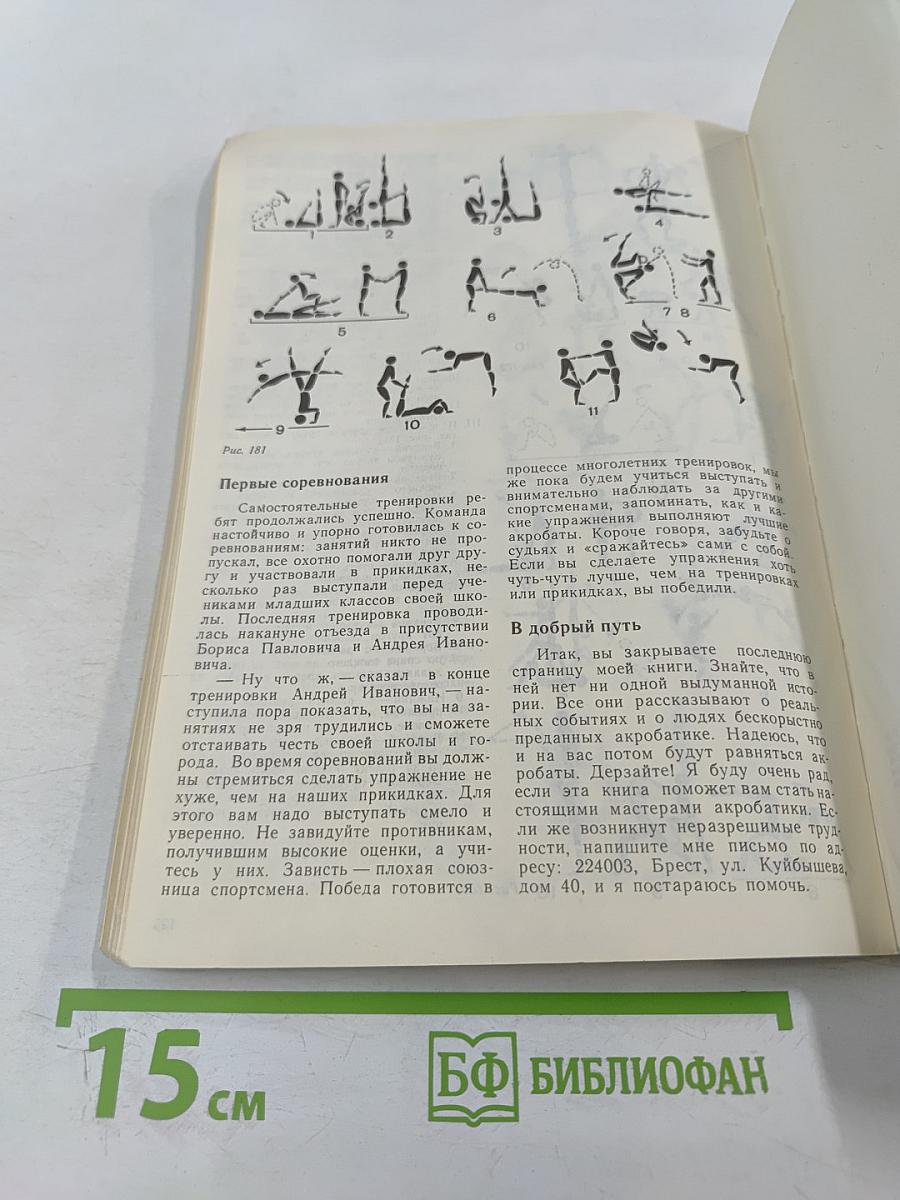 1
2
3
4
5
6
7 8
9
10
11
Рис. 181
Первые соревнования
Самостоятельные тренировки ре-
бят продолжались успешно. Команда
настойчиво и упорно готовилась к со-
ревнованиям: занятий никто не про-
пускал, все охотно помогали друг дру-
гу и участвовали в прикидках, не-
сколько раз выступали перед уче-
никами младших классов своей шко-
лы. Последняя тренировка проводи-
лась накануне отъезда в присутствии
Бориса Павловича и Андрея Ивано-
вича.
— Ну что ж, — сказал в конце
тренировки Андрей Иванович, — на-
ступила пора показать, что вы на за-
нятиях не зря трудились и сможете
отстаивать честь своей школы и го-
рода. Во время соревнований вы долж-
ны стремиться сделать упражнение не
хуже, чем на наших прикидках. Для
этого вам надо выступать смело и
уверенно. Не завидуйте противникам,
получившим высокие оценки, а учи-
тесь у них. Зависть — плохая союз-
ница спортсмена. Победа готовится в
процессе многолетних тренировок, мы
же пока будем учиться выступать и
внимательно наблюдать за другими
спортсменами, запоминать, как и ка-
кие упражнения выполняют лучшие
акробаты. Короче говоря, забудьте о
судьях и «сражайтесь» сами с собой.
Если вы сделаете упражнения хоть
чуть-чуть лучше, чем на тренировках
или прикидках, вы победили.
В добрый путь
Итак, вы закрываете последнюю
страницу моей книги. Знайте, что в
ней нет ни одной выдуманной исто-
рии. Все они рассказывают о реаль-
ных событиях и о людях бескорыстно
преданных акробатике. Надеюсь, что
и на вас потом будут равняться ак-
робаты. Дерзайте! Я буду очень рад,
если эта книга поможет вам стать на-
стоящими мастерами акробатики. Ес-
ли же возникнут неразрешимые труд-
ности, напишите мне письмо по ад-
ресу: 224003, Брест, ул. Куйбышева,
дом 40, и я постараюсь помочь.
15 см
БФ БИБЛИОФАН